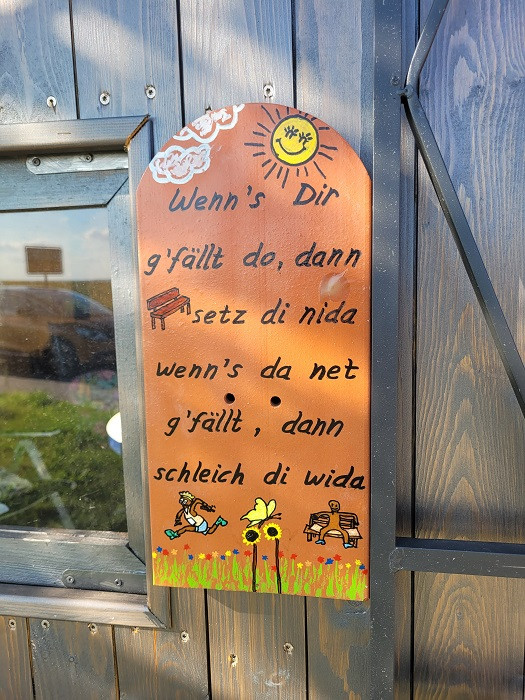 Wenn's Dir
g'fällt do, dann
setz di nida
wenn's da net
g'fällt, dann
schleich di wida